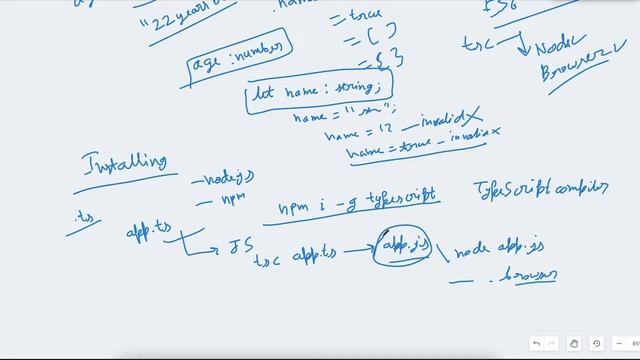 "22 years
name
= true
= [ ]
= { }
age : number
let name : string;
name = "sm";
name = 12 — invalid X
name = true — invalid X
ES6
tsc → Node ✓
Browser ✓
Installing
— nodejs
— npm
.ts
app.ts
→ JS
npm i -g typescript
TypeScript compiler
tsc app.ts → app.js
node app.js
— . browser